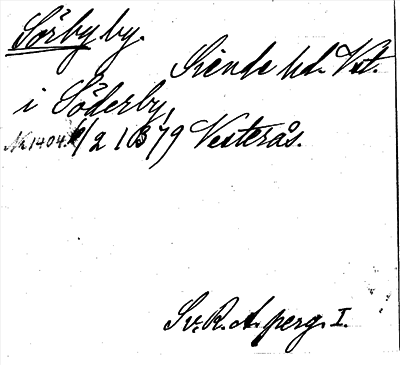 Sörby by.
Siende hd. Vst.
i Söderby,
Nr 1404. 1/2 1379 Vesterås.
Sv. R. A. perg. I.